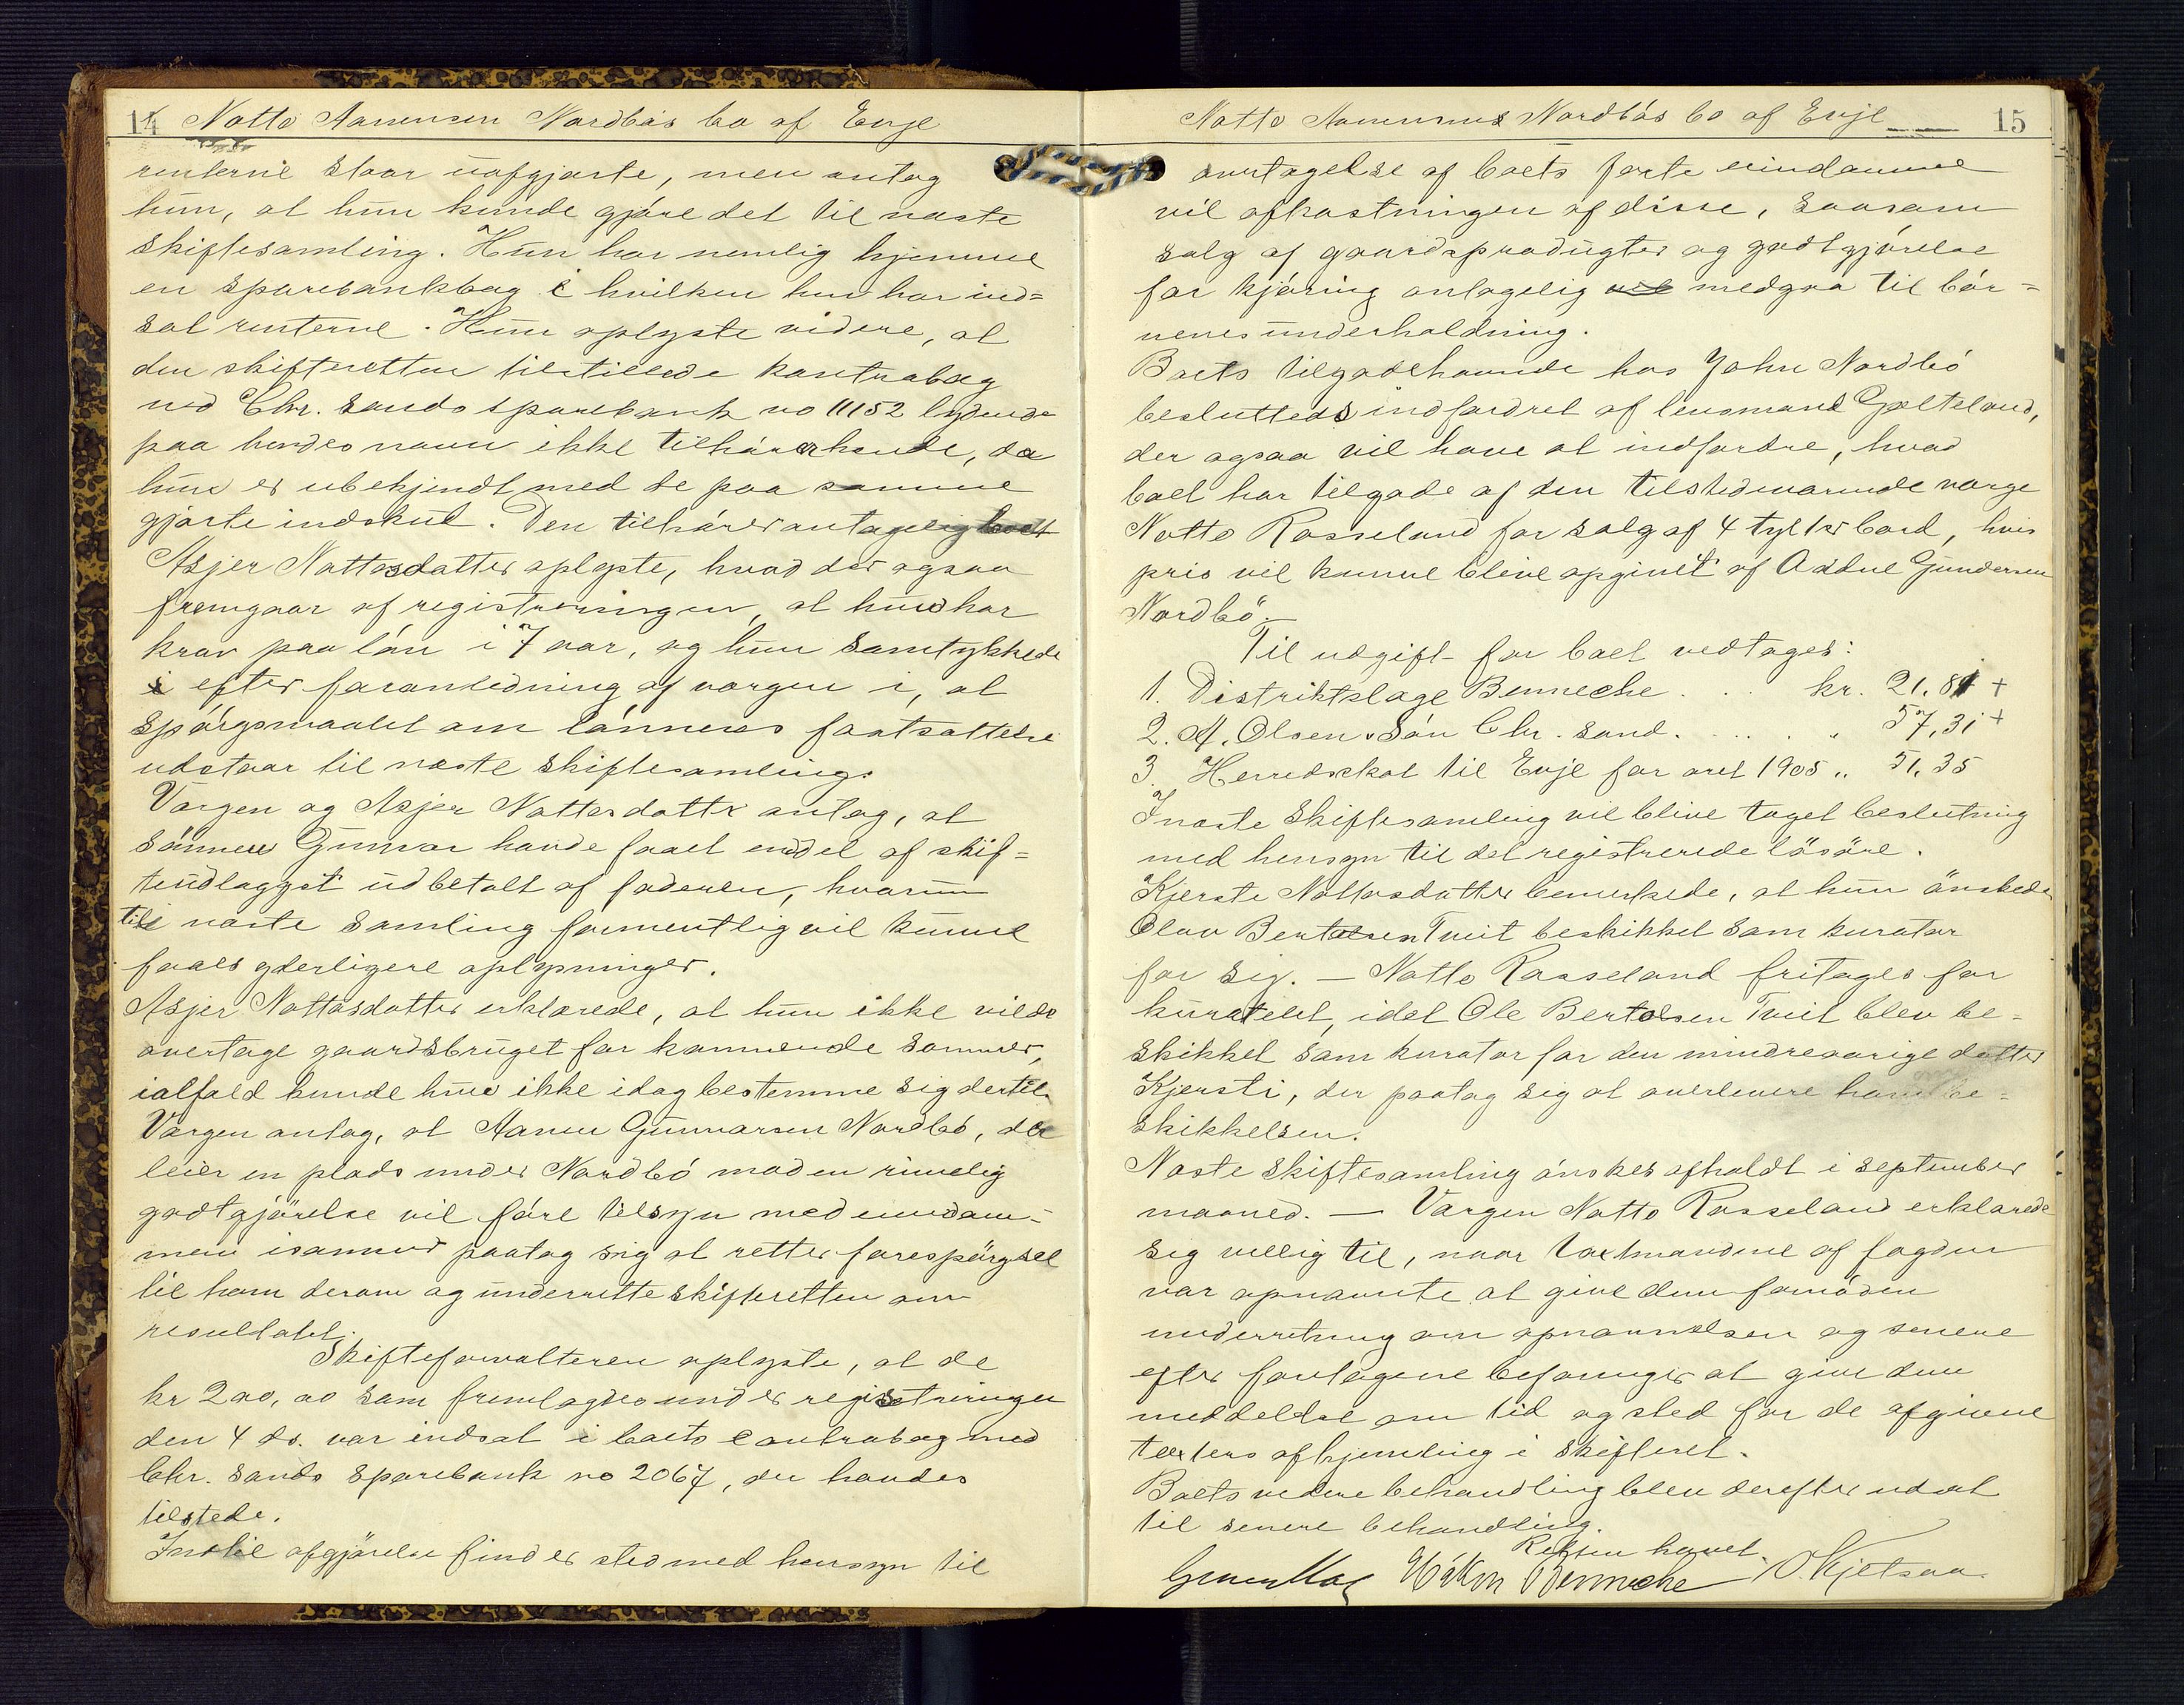 14 Notto Aanensen Nordbøs bo af Evje
renterne staar uafgjorte, men antog
hun, at hun kunde gjøre det til næste
skiftesamling. Hun har nemlig hjemme
en sparebankbog i hvilken hun har ind=
sat renterne. Hun oplyste videre, at
den skifteretten tilstillede kontrabog
med Chr. Sands sparebank no 11152 lydende
paa hendes navn ikke tilhører hende, da
hun er ubekjendt med de paa samme
gjorte indskud. Den tilhører antagelig boet
Asjer Nottosdatter oplyste, hvad der ogsaa
fremgaar af registreringen, at hun har
krav paa løn i 7 aar, og hun samtykkede
efter foranledning af værgen i, at
spørgsmaalet om lønnens fastsættelse
udstaar til næste skiftesamling.
Værgen og Asjer Nottosdatter antog, at
sønnen Gunvar havde faaet endel af skif=
teudlægget udbetalt af faderen, hvorum
til næste samling formentlig vil kunne
faaes yderligere oplysninger.
Asjer Nottosdatter erklærede, at hun ikke vilde
overtage gaardsbruget for kommende sommer,
ialfald kunde hun ikke idag bestemme sig dertil.
Værgen antog, at Aanen Gunnarsen Nordbø, der
leier en plads under Nordbø mod en rimelig
godtgjørelse vil føre tilsyn med eiendom=
men isammud paatog sig at rette forespørgsel
til ham derom og underrette skifteretten om
resultatet.
Skifteforvalteren oplyste, at de
kr 200,00 som fremlagdes under registreringen
den 4 ds. var indsat i boets contrabog med
Chr. Sands Sparebank no 2067, der havdes
tilstede.
Indtil afgjørelse finder sted med hensyn til
Notto Aanensens Nordbøs bo af Evje 15
overtagelse af boets faste eiendomme
vil afkastningen af disse, saasom
salg af gaardsprodugter og godtgjørelse
for kjøring antagelig medgaa til bør=
nenes underholdning.
Boets tilgodehavende hos John Nordbø
besluttedes indfordret af lensmand Gjelteland,
der ogsaa vil have at indfordre, hvad
boet har tilgode af den tilstedeværende værge
Notto Rosseland for salg af 4 tylter bord, hvis
pris vil kunne blive opgivet af Oddne Gundersen
Nordbö.
Til udgift for boet vedtages:
1. Distriktslæge Benneche . . . kr. 21.81 +
2. A. Olsen & Søn Chr. Sand. . . . . " 57,31 +
3. Herredsskat til Evje for aret 1905 " 51,35
I næste skiftesamling vil blive taget beslutning
med hensyn til det registrerede lösöre.
Kjerste Nottosdatter bemerkede, at hun önskede
Olav Bertelsen Tveit beskikket som kurator
for sig. — Notto Rosseland fritages for
kuratelet, idet Ole Bertolsen Tveit blev be=
skikket som kurator for den mindreaarige datter
Kjersti, der paatog sig at overlevere ham be=
skikkelsen.
Næste skiftesamling ønskes afholdt i september
maaned. — Værgen Notto Rosseland erklærede
sig villig til, naar taxtmændene af fogden
var opnævnte at give dem fornöden
underretning om opnævnelsen og senere
efter foretagene befaringer at give dem
meddelelse om tid og sted for de afgivne
taxters afhjemling i skifteret.
Boets videre behandling blev derefter udsat
til senere behandling.
Retten hævet.
Håkon Benneche O. Kjetsaa